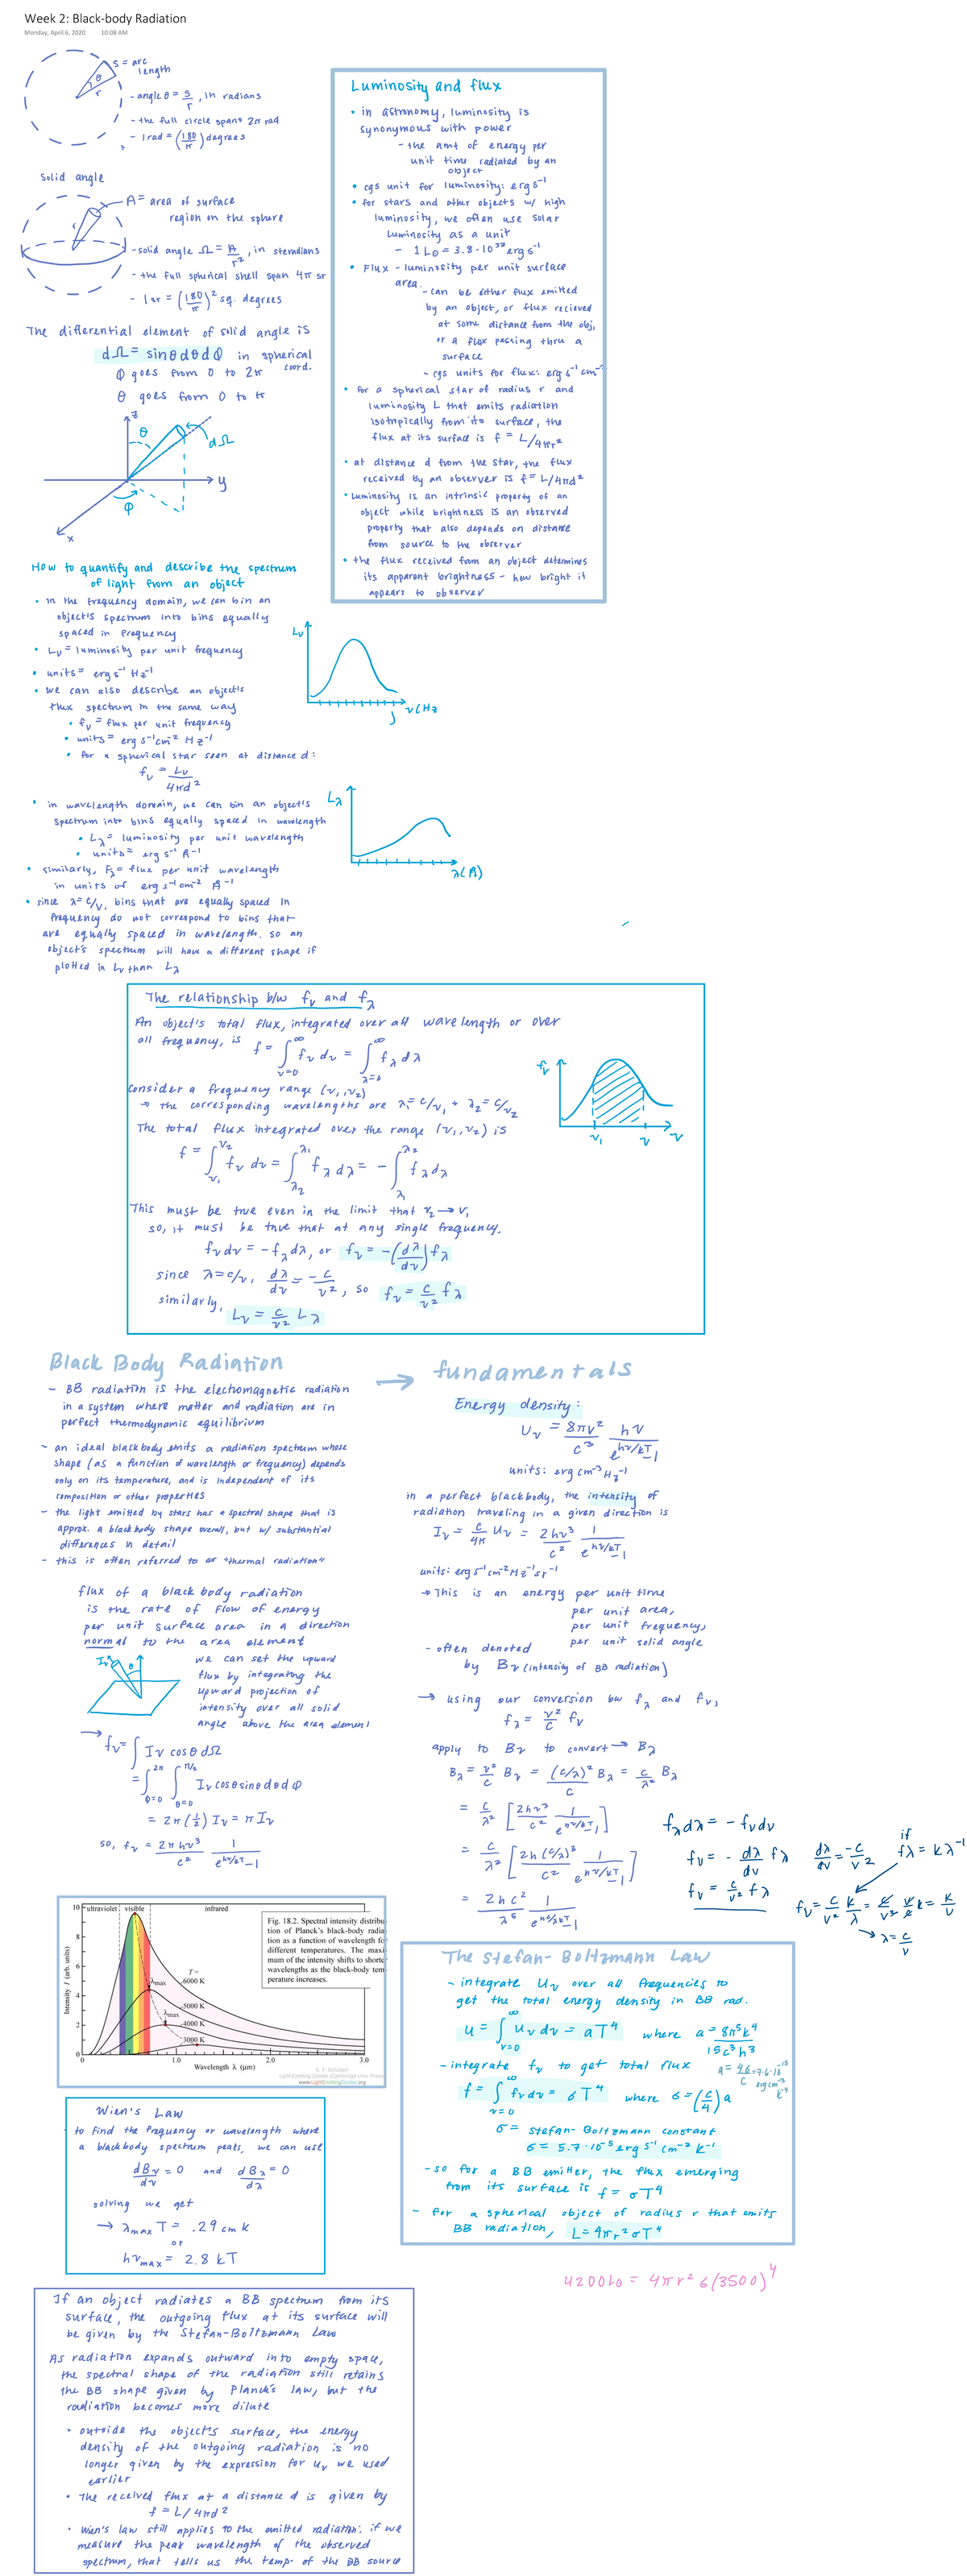 Week 2: Black-body Radiation
Monday, April 6, 2020 10:08 AM
s = arc
length
θ
r
- angle θ = s/r, in radians
- the full circle spans 2π rad
- 1 rad = (180/π) degrees
Solid angle
A = area of surface
region on the sphere
r
- solid angle Ω = A/r², in steradians
- the full spherical shell span 4π sr
- 1 sr = (180/π)² sq. degrees
The differential element of solid angle is
dΩ = sinθdθdϕ in spherical
coord.
ϕ goes from 0 to 2π
θ goes from 0 to π
z
θ
dΩ
y
ϕ
x
Luminosity and flux
• in astronomy, luminosity is
synonymous with power
- the amt of energy per
unit time radiated by an
object
• cgs unit for luminosity: erg s⁻¹
• for stars and other objects w/ high
luminosity, we often use solar
luminosity as a unit
- 1 L⊙ = 3.8·10³³ erg s⁻¹
• Flux - luminosity per unit surface
area.
- can be either flux emitted
by an object, or flux recieved
at some distance from the obj,
or a flux passing thru a
surface
- cgs units for flux: erg s⁻¹ cm⁻²
• for a spherical star of radius r and
luminosity L that emits radiation
isotropically from its surface, the
flux at its surface is f = L/4πr²
• at distance d from the star, the flux
received by an observer is f = L/4πd²
• luminosity is an intrinsic property of an
object while brightness is an observed
property that also depends on distance
from source to the observer
• the flux received from an object determines
its apparent brightness - how bright it
appears to observer
How to quantify and describe the spectrum
of light from an object
• in the frequency domain, we can bin an
object's spectrum into bins equally
spaced in frequency
• Lν = luminosity per unit frequency
• units = erg s⁻¹ Hz⁻¹
• we can also describe an object's
flux spectrum in the same way
• fν = flux per unit frequency
• units = erg s⁻¹ cm⁻² Hz⁻¹
• for a spherical star seen at distance d:
fν = Lν/4πd²
Lν
ν (Hz
)
• in wavelength domain, we can bin an object's
spectrum into bins equally spaced in wavelength
• Lλ = luminosity per unit wavelength
• units = erg s⁻¹ Å⁻¹
• similarly, Fλ = flux per unit wavelength
in units of erg s⁻¹ cm⁻² Å⁻¹
• since λ = c/ν, bins that are equally spaced in
frequency do not correspond to bins that
are equally spaced in wavelength. so an
object's spectrum will have a different shape if
plotted in Lν than Lλ
Lλ
λ (Å)
The relationship b/w fν and fλ
An object's total flux, integrated over all wavelength or over
all frequency, is f = ∫_{ν=0}^{∞} fν dν = ∫_{λ=0}^{∞} fλ dλ
Consider a frequency range (ν₁, ν₂)
→ the corresponding wavelengths are λ₁ = c/ν₁ + λ₂ = c/ν₂
The total flux integrated over the range (ν₁, ν₂) is
f = ∫_{ν₁}^{ν₂} fν dν = ∫_{λ₂}^{λ₁} fλ dλ = - ∫_{λ₁}^{λ₂} fλ dλ
This must be true even in the limit that ν₂ → ν₁
so, it must be true that at any single frequency.
fν dν = -fλ dλ, or fν = -(dλ/dν) fλ
since λ = c/ν, dλ/dν = -c/ν², so fν = c/ν² fλ
similarly, Lν = c/ν² Lλ
fν
ν₁
ν
ν
Black Body Radiation → fundamentals
- BB radiation is the electomagnetic radiation
in a system where matter and radiation are in
perfect thermodynamic equilibrium
- an ideal blackbody emits a radiation spectrum whose
shape (as a function of wavelength or frequency) depends
only on its temperature, and is independent of its
composition or other properties
- the light emitted by stars has a spectral shape that is
approx. a blackbody shape overall, but w/ substantial
differences in detail
- this is often referred to as "thermal radiation"
flux of a black body radiation
is the rate of flow of energy
per unit surface area in a direction
normal to the area element
Iν
θ
we can set the upward
flux by integrating the
upward projection of
intensity over all solid
angle above the area element
→ fν = ∫ Iν cosθ dΩ
= ∫_{ϕ=0}^{2π} ∫_{θ=0}^{π/2} Iν cosθ sinθ dθ dϕ
= 2π(1/2) Iν = π Iν
so, fν = 2πhν³/c² 1/(e^{hν/kT}-1)
Energy density:
Uν = 8πν²/c³ hν/(e^{hν/kT}-1)
units: erg cm⁻³ Hz⁻¹
in a perfect blackbody, the intensity of
radiation traveling in a given direction is
Iν = c/4π Uν = 2hν³/c² 1/(e^{hν/kT}-1)
units: erg s⁻¹ cm⁻² Hz⁻¹ sr⁻¹
→ This is an energy per unit time
per unit area,
per unit frequency,
per unit solid angle
- often denoted
by Bν (intensity of BB radiation)
→ using our conversion bw fλ and fν,
fλ = ν²/c fν
apply to Bν to convert → Bλ
Bλ = ν²/c Bν = (c/λ)²/c Bλ = c/λ² Bλ
= c/λ² [2hν³/c² 1/(e^{hν/kT}-1)]
= c/λ² [2h(c/λ)³/c² 1/(e^{hν/kT}-1)]
= 2hc²/λ⁵ 1/(e^{hc/λkT}-1)
fλdλ = -fνdν
fν = - dλ/dν fλ
fν = c/ν² fλ
dλ/dν = -c/ν²
if
fλ = kλ⁻¹
fν = c/ν² k/λ = c/ν² ν/c k = k/ν
→ λ = c/ν
10
8
6
4
2
0
Intensity I (arb. units)
ultraviolet
visible
infrared
T =
6000 K
5000 K
4000 K
3000 K
λmax
λmax
0
1.0
2.0
3.0
Wavelength λ (μm)
Fig. 18.2. Spectral intensity distribu-
tion of Planck's black-body radia-
tion as a function of wavelength for
different temperatures. The maxi-
mum of the intensity shifts to shorte
wavelengths as the black-body tem-
perature increases.
E. F. Schubert
Light-Emitting Diodes (Cambridge Univ. Press
www.LightEmittingDiodes.org
Wien's Law
to find the frequency or wavelength where
a blackbody spectrum peaks, we can use
dBν/dν = 0 and dBλ/dλ = 0
solving we get
→ λmax T = .29 cm K
or
hνmax = 2.8 kT
The Stefan-Boltzmann Law
- integrate Uν over all frequencies to
get the total energy density in BB rad.
u = ∫_{ν=0}^{∞} uν dν = aT⁴ where a = 8π⁵k⁴/15c³h³
- integrate fν to get total flux
a = 4σ/c = 7.6·10⁻¹⁵
erg cm⁻³
k⁻⁴
f = ∫_{ν=0}^{∞} fν dν = σT⁴ where σ = (c/4) a
σ = stefan-Boltzmann constant
σ = 5.7·10⁻⁵ erg s⁻¹ cm⁻² k⁻¹
- so for a BB emitter, the flux emerging
from its surface is f = σT⁴
- for a spherical object of radius r that emits
BB radiation, L = 4πr²σT⁴
4200L⊙ = 4πr²σ(3500)⁴
If an object radiates a BB spectrum from its
surface, the outgoing flux at its surface will
be given by the Stefan-Boltzmann Law
As radiation expands outward into empty space,
the spectral shape of the radiation still retains
the BB shape given by Planck's law, but the
radiation becomes more dilute
• outside the object's surface, the energy
density of the outgoing radiation is no
longer given by the expression for uν we used
earlier
• The received flux at a distance d is given by
f = L/4πd²
• Wien's law still applies to the emitted radiation: if we
measure the peak wavelength of the observed
spectrum, that tells us the temp. of the BB source